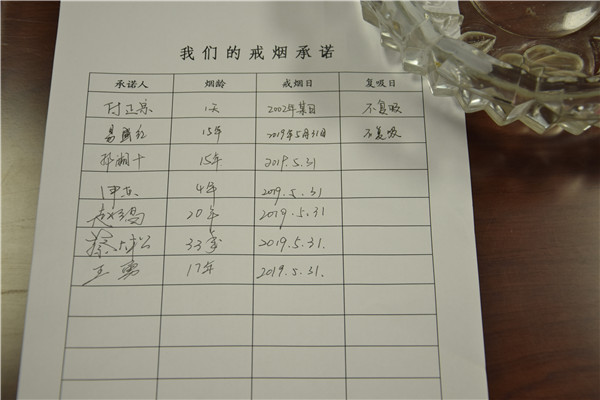 我们的戒烟承诺
承诺人 烟龄 戒烟日 复吸日
付正 1天 2002年某日 不复吸
易 红 15年 2019年5月31日 不复吸
湘 15年 2019.5.31
4年 2019.5.31
赵 20年 2019.5.31
蔡 松 33年 2019.5.31.
王勇 17年 2019.5.31.